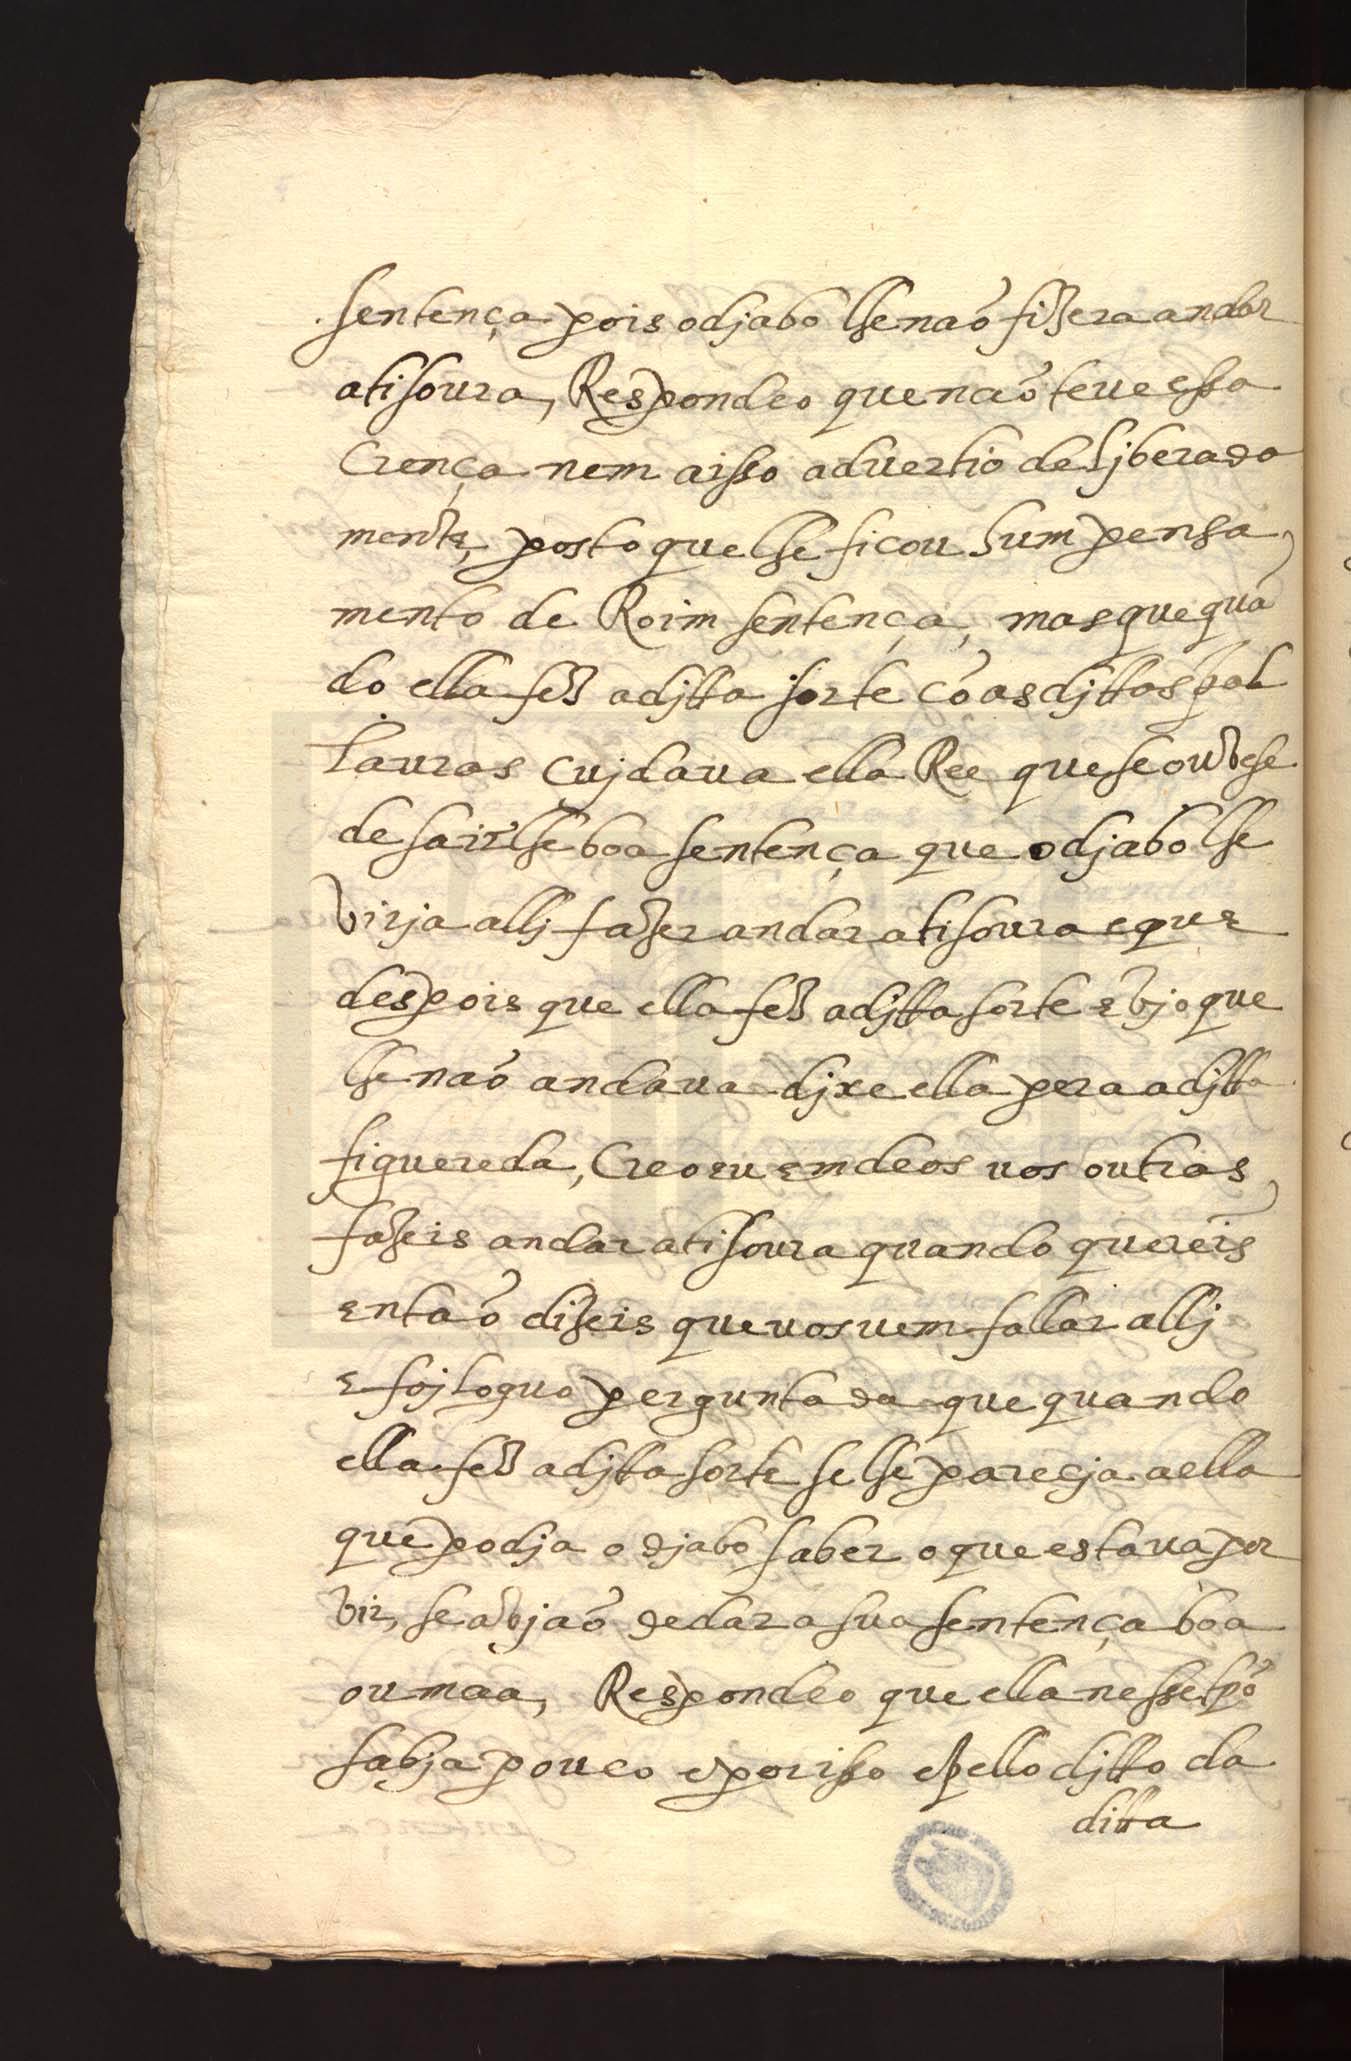 sentença pois o djabo lhe não fizera andar
a tisoura, Respondeo que não teue essa
Crença nem a isso aduertio deliberada
mente, posto que lhe ficou hum pensa
mento de Roim sentença, mas que quã
do ella fez a djtta sorte cõ as djttas pal
lauras Cujdaua ella Ree que se ouvese
de sairlhe boa sentença que o djabo lhe
virja allj fazer andar a tisoura e que
despois que ella fez a djtta sorte e vjo que
lhe não andaua djxe ella pera a djtta
figuereda, Creo eu em deos uos outras
fazeis andar a tisoura quando quereis
então dizeis que uos uem fallar allj
e fojloguo perguntada que quando
ella fez a djtta sorte se lhe parecja a ella
que podja o djabo saber o que estaua por
vir, se avjão de dar a sua sentença boa
ou maa, Respondeo que ella nesse tpõ
sabja pouco e por isso e pello djtto da
ditta